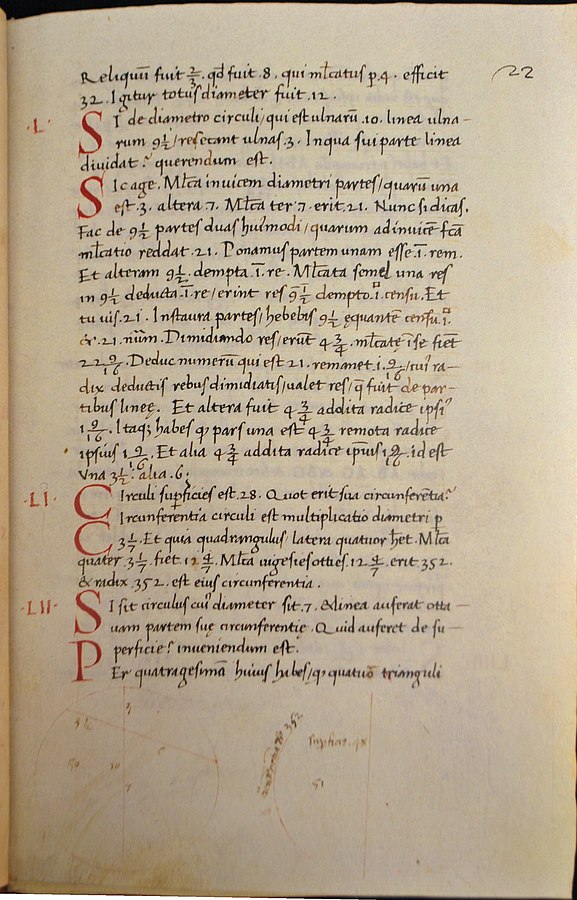 22
Reliquū fuit 2/3. qd̄ fuit .8. qui ml̄catus p̱.4. efficit
32. Igitur totus diameter fuit .12.
.L. SI de diametro circuli/ qui est ulnarū .10. linea ulna-
rum 9 1/2/ resecant ulnas .3. In qua sui parte linea
dividat᷒ querendum est.
SIc age. Ml̄ca invicem diametri partes/ quarū una
est .3. altera .7. Ml̄ca ter .7. erit .21. Nunc si dicas.
Fac de 9 1/2 partes duas huiꝰmodi/ quarum adinvicē fc̄a
ml̄catio reddat .21. Ponamus partem unam esse .1̄. rem.
Et alteram 9 1/2. dempta .1̄. re. Ml̄cata semel una res
in 9 1/2 deducta .1̄. re/ erint res 9 1/2 dempto .1. censu. Et
tu vis .21. Instaura partes/ hebebis 9 1/2 ęquantē censu .1.
& .21. nūm. Dimidiando res/ erūt 4 3/4. ml̄catę ī se fiet
22 9/16. Deduc numerū qui est 21. remanet .1. 9/16 /cuiꝰ ra-
dix deductis rebus dimidiatis/ valet res/ q̄ fuit de par-
tibus lineę. Et altera fuit 4 3/4 addita radice ipsiꝰ
1 9/16. Itaq; habes ꝙ pars una est 4 3/4 remota radice
ipsius 1 9/16. Et alia 4 3/4 addita radice ipsius 1 9/16. id est
una 3 1/2. alia .6.
.LI. CIrculi sup̱ficies est .28. Quot erit sua circunferētia?
CIrcunferentia circuli est multiplicatio diametri p̱
3 1/7. Et quia quadrangulus/ latera quatuor h̄et. Ml̄ca
quater 3 1/7. fiet .12 4/7. Ml̄ca vigesies octies .12 4/7. erit 352.
& radix 352. est eius circunferentia.
.LII. SI sit circulus cuiꝰ diameter sit .7. & linea auferat octa-
vam partem suę circunferentię. Quid auferet de su-
perficie? inveniendum est.
PEr quatragesimam huius habes/ ꝙ quatuor trianguli
3
3 1/2
7
352
51